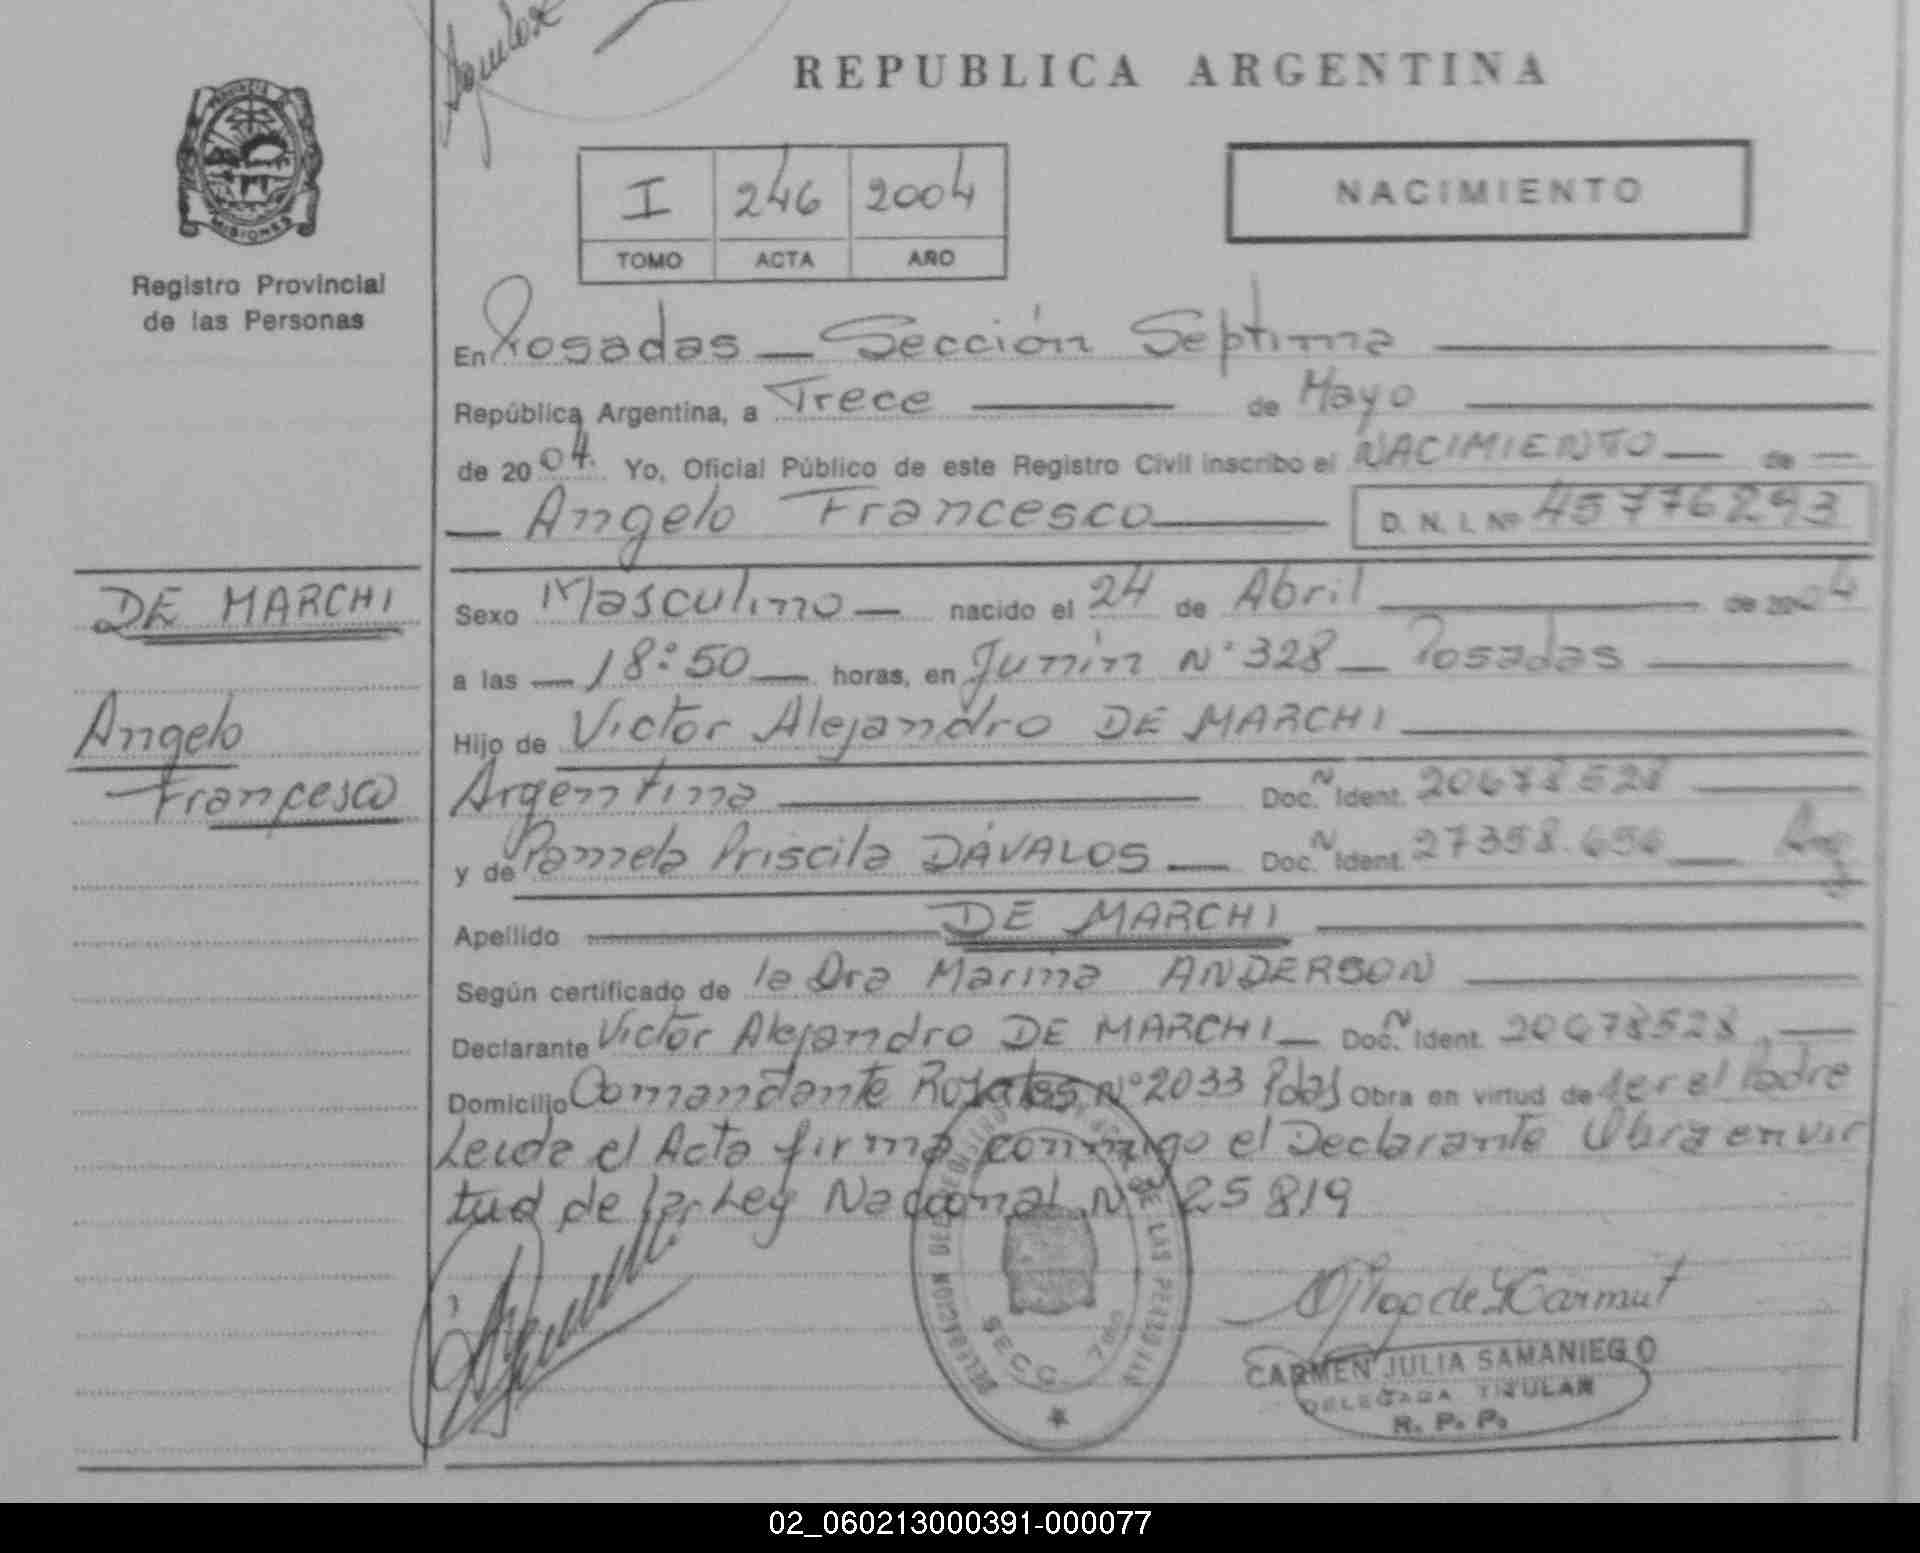 REPUBLICA ARGENTINA
PROVINCIA DE
MISIONES
Registro Provincial
de las Personas
I 246 2004
TOMO ACTA AÑO
NACIMIENTO
En Posadas — Sección Septima
República Argentina, a Trece de Mayo
de 2004. Yo, Oficial Público de este Registro Civil inscribo el NACIMIENTO de
Angelo Francesco D. N. I. Nº 45776293
DE MARCHI
Angelo
Francesco
Sexo Masculino nacido el 24 de Abril de 2004
a las 18:50 horas, en Junín N° 328 — Posadas
Hijo de Victor Alejandro DE MARCHI
Argentina Doc. N Ident. 20678528
y de Pamela Priscila DÁVALOS Doc. N Ident. 27398.656 Arg
Apellido DE MARCHI
Según certificado de la Dra Marina ANDERSON
Declarante Victor Alejandro DE MARCHI Doc. N Ident. 20678528
Domicilio Comandante Rosales N° 2033 Pdas Obra en virtud de ser el Padre
Leida el Acta firma conmigo el Declarante Obra en vir
tud de la Ley Nacional N° 25819
DELEGACION DEL REGISTRO DE LAS PERSONAS
SECC. 7
CARMEN JULIA SAMANIEGO
DELEGADA TITULAR
R. P. P.
02_060213000391-000077